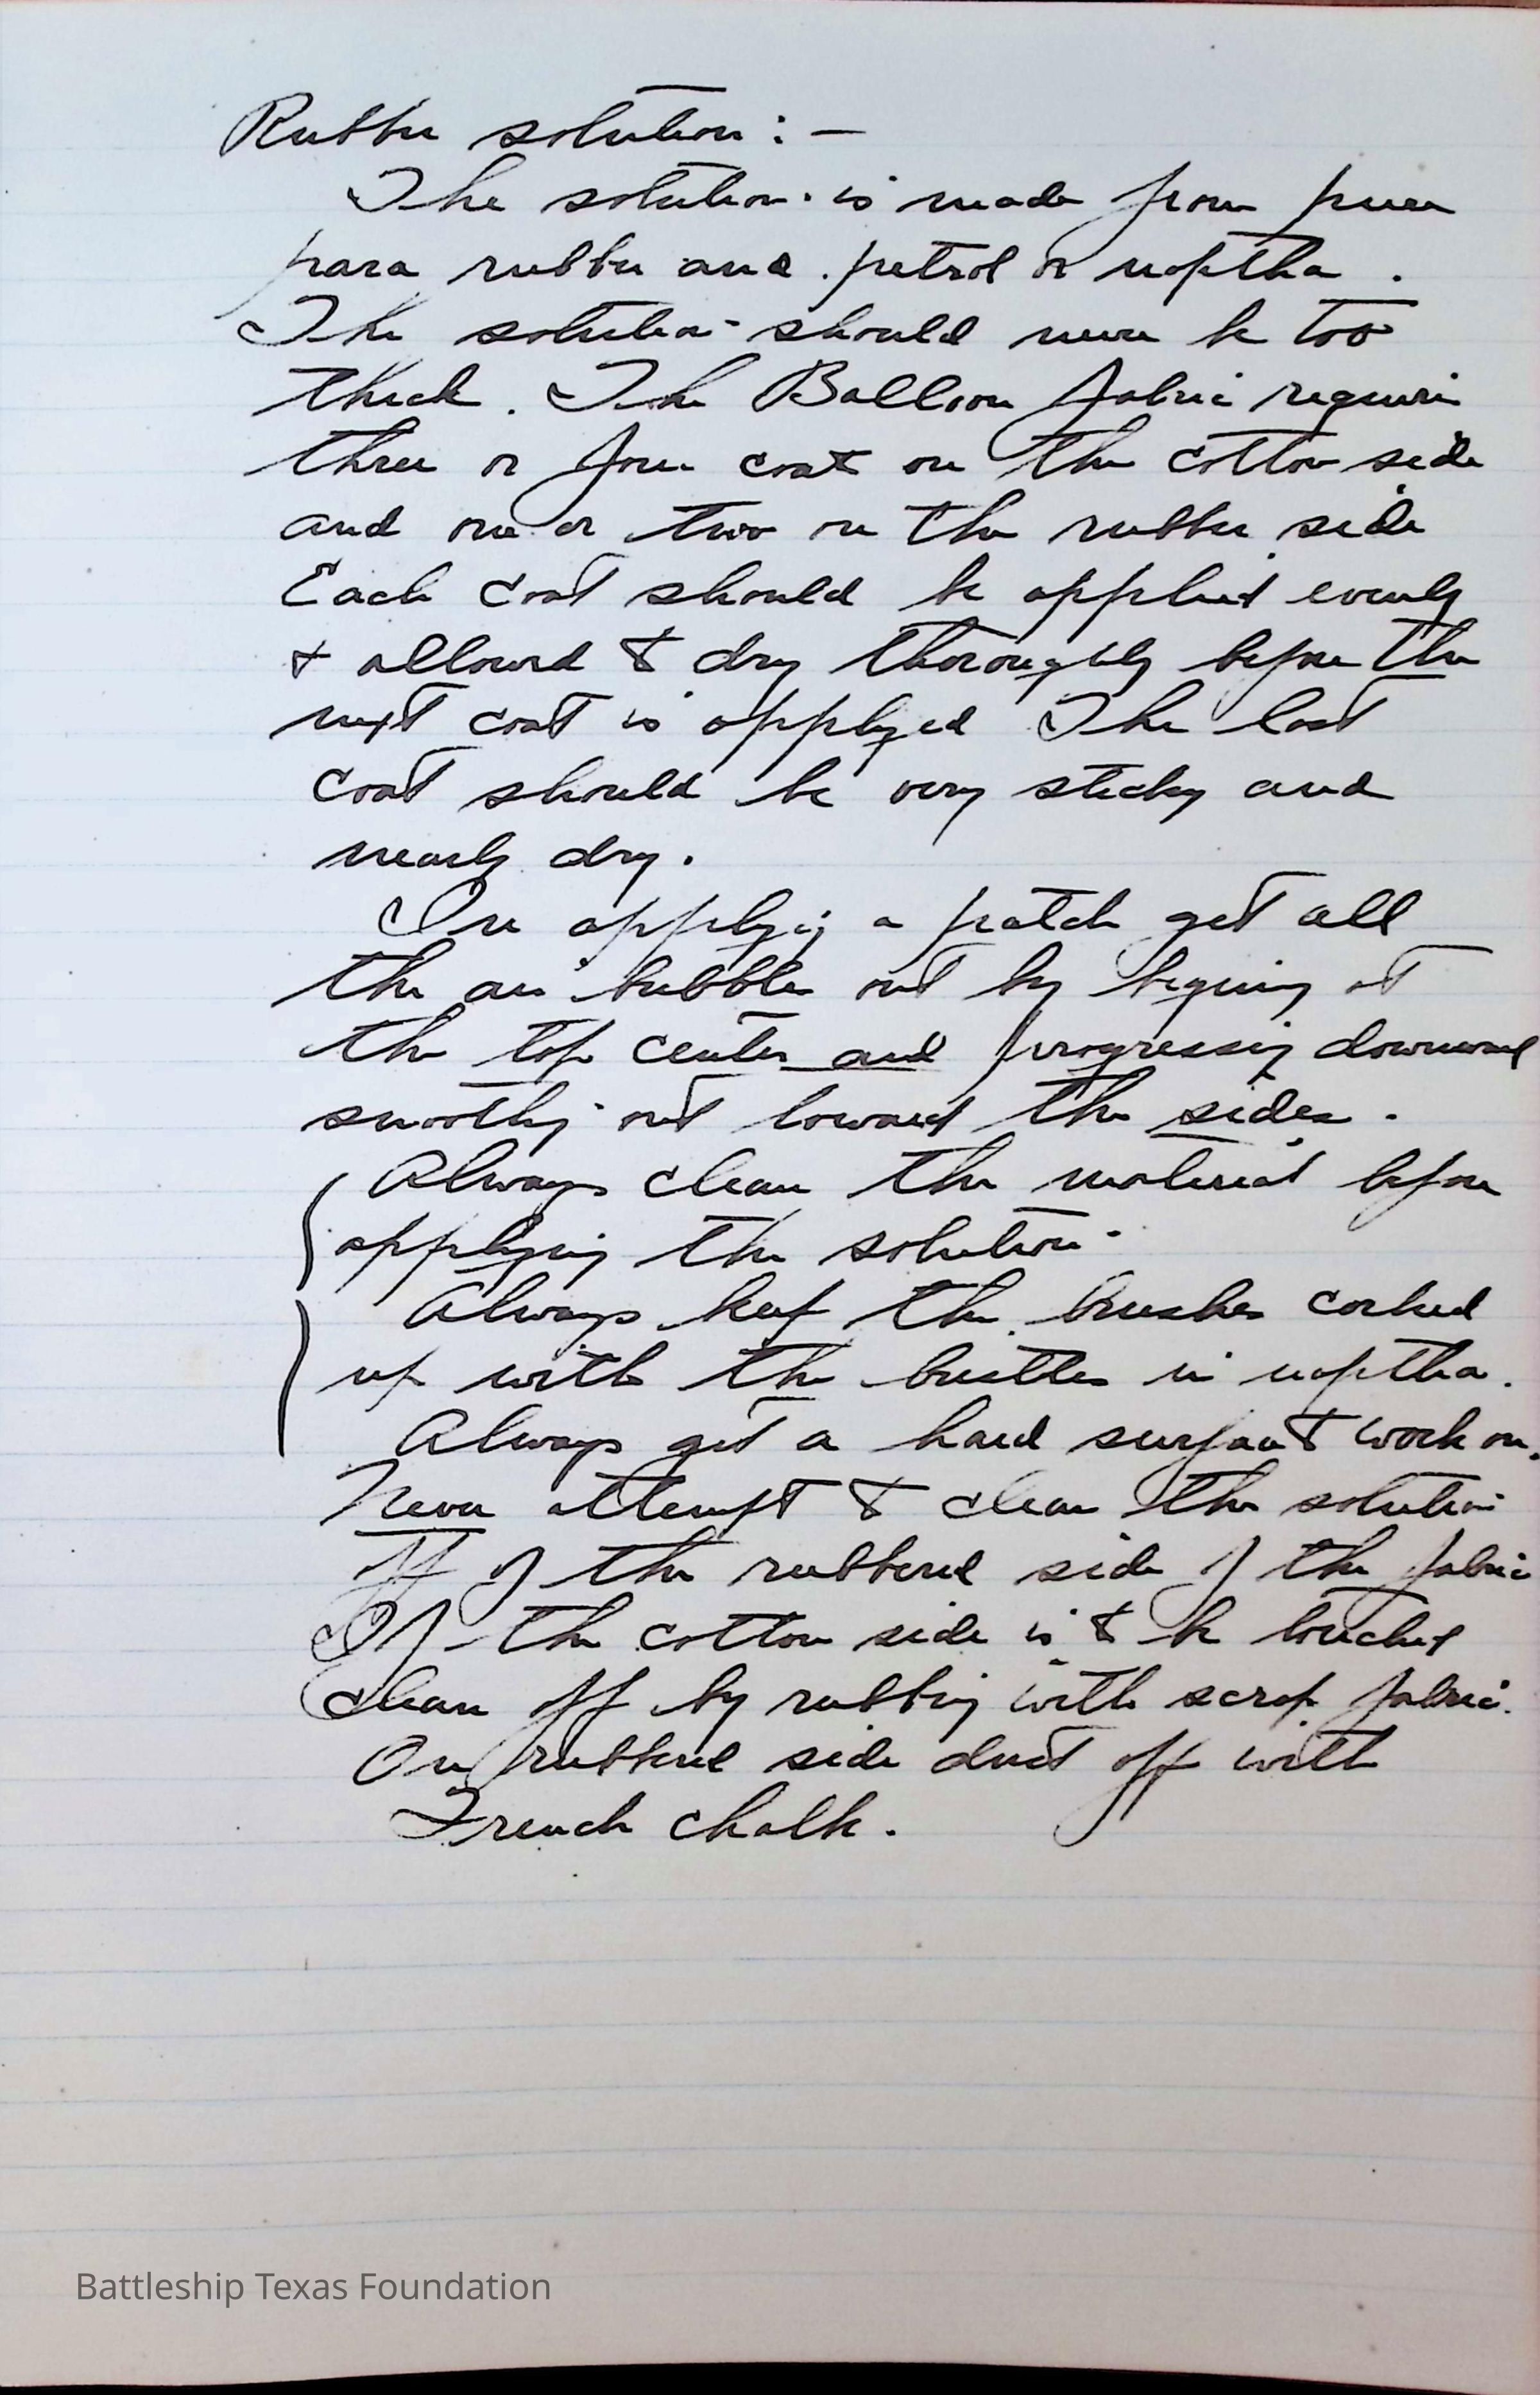 Rubber solution : —
The solution is made from pure
para rubber and petrol or naptha .
The solution should never be too
thick . The Balloon fabric requires
three or four coats on the cotton side
and one or two on the rubber side
Each coat should be applied evenly
& allowed to dry thoroughly before the
next coat is applyed The last
coat should be very sticky and
nearly dry .
In applying a patch get all
the air bubbles out by begining at
the top center and progressing downward
smoothing out toward the sides .
Always clean the material before
applying the solution .
Always keep the brushes corked
up with the bristles in naptha .
Always get a hard surface to work on .
Never attempt to clean the solution
off of the rubbered side of the fabric
If the cotton side is to be touched
clean off by rubbing with scrap fabric .
On rubbered side dust off with
French chalk .
Battleship Texas Foundation